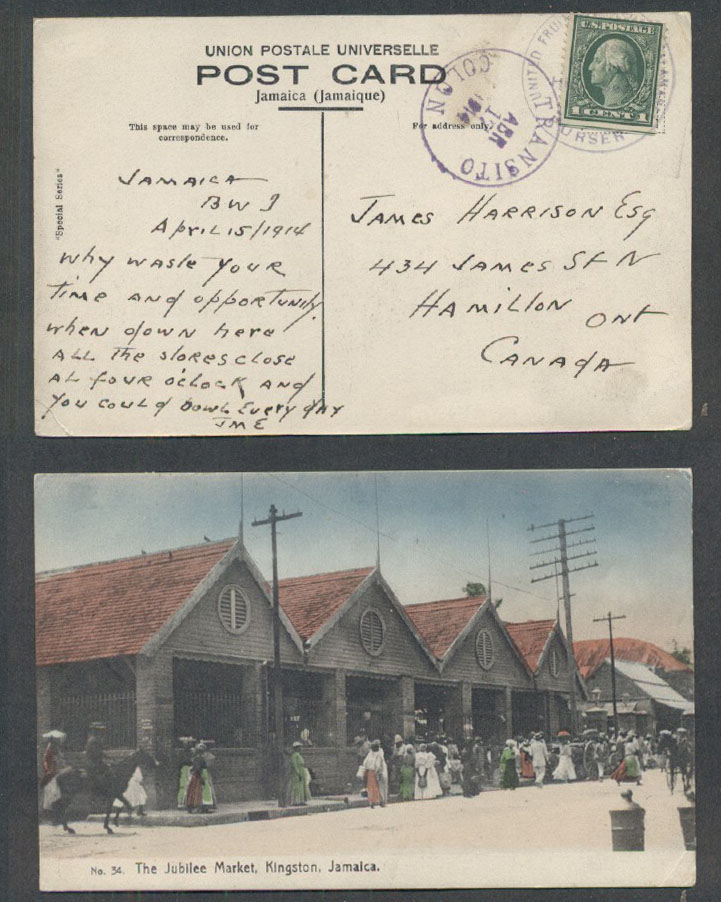 UNION POSTALE UNIVERSELLE
POST CARD
Jamaica (Jamaique)
This space may be used for
correspondence.
For address only.
"Special Series"
U.S. POSTAGE
1 CENT 1
COLON
ABR
17
1914
TRANSITO
UNITED FRU
PURSER
JAMAICA
BWI
APRIL 15/1914
Why waste your
time and opportunity
when down here
ALL the stores close
at four o'clock and
you could bowl every day
JME
James Harrison Esq
434 James St N
Hamilton Ont
Canada
No. 34. The Jubilee Market, Kingston, Jamaica.